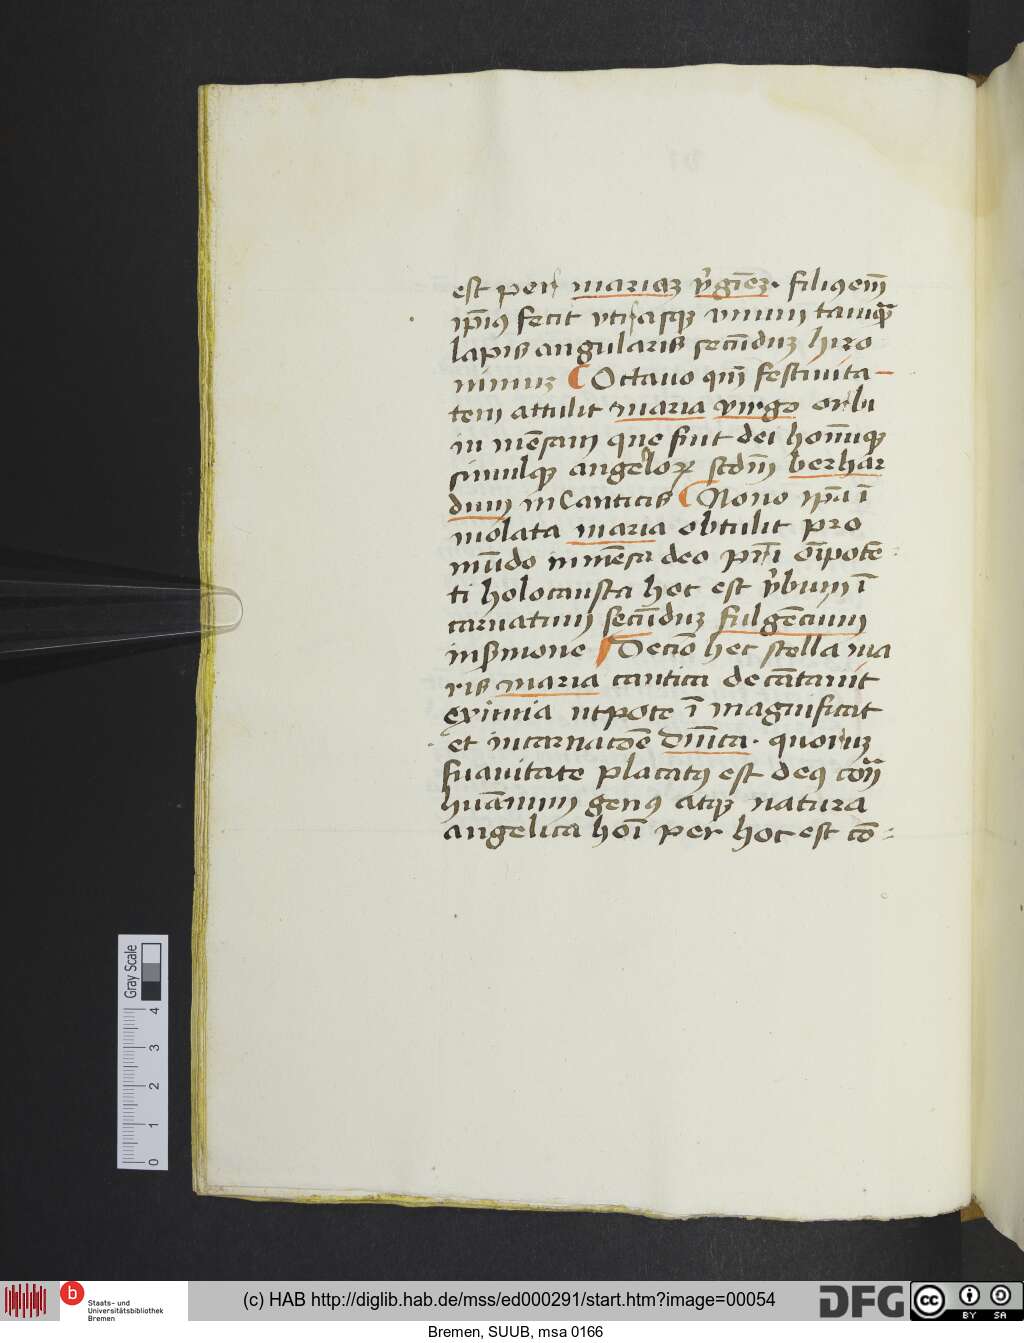 est per mariaʒ v̓gīeʒ. filiꝯ em̄
ip̄iꝰ fecit vtrasqꝫ vnum tamqᷓ
lapis angularis secūduʒ hiro
nimuʒ Octauo qm̄ festiuita-
tem attulit maria virgo orbi
in mēsam que sūt dei homīuqꝫ
simulqꝫ angeloꝝ scdm̄ berhar
dum in Canticis Nono ip̄a ī
molata maria obtulit pro
mūdo inmēsa deo pr̄i oīpotē
ti holocausta hoc est v̓bum ī
carnatum secūduʒ fulgēcium
in sermone Decio hec stella ma
ris maria cantica decātauit
eximia utpote ī magnificat
et incarnacōe dn̄ica. quoruʒ
suauitate placatꝰ est deꝰ
hūanum genꝰ atqꝫ natura
angelica hoī per hoc est cō-
Gray Scale
0 1 2 3 4
b Staats- und
Universitätsbibliothek
Bremen
(c) HAB http://diglib.hab.de/mss/ed000291/start.htm?image=00054
DFG
cc BY SA
Bremen, SUUB, msa 0166